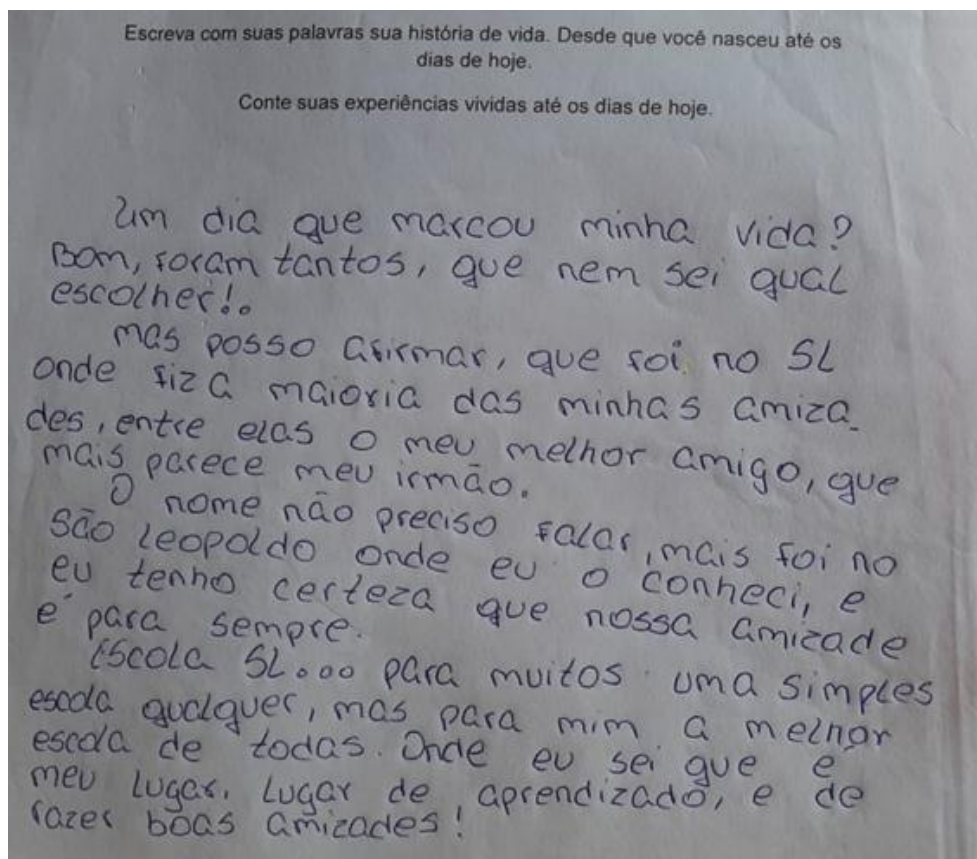 Escreva com suas palavras sua história de vida. Desde que você nasceu até os
dias de hoje.
Conte suas experiências vividas até os dias de hoje.
Um dia que marcou minha vida?
Bom, foram tantos, que nem sei qual
escolher!.
mas posso afirmar, que foi no SL
onde fiz a maioria das minhas amiza_
des, entre elas o meu melhor amigo, que
mais parece meu irmão.
O nome não preciso falar, mais foi no
São Leopoldo onde eu o conheci, e
eu tenho certeza que nossa amizade
é para sempre.
Escola SL... para muitos uma simples
escola qualquer, mas para mim a melhor
escola de todas. Onde eu sei que e
meu lugar. Lugar de aprendizado, e de
fazer boas amizades!